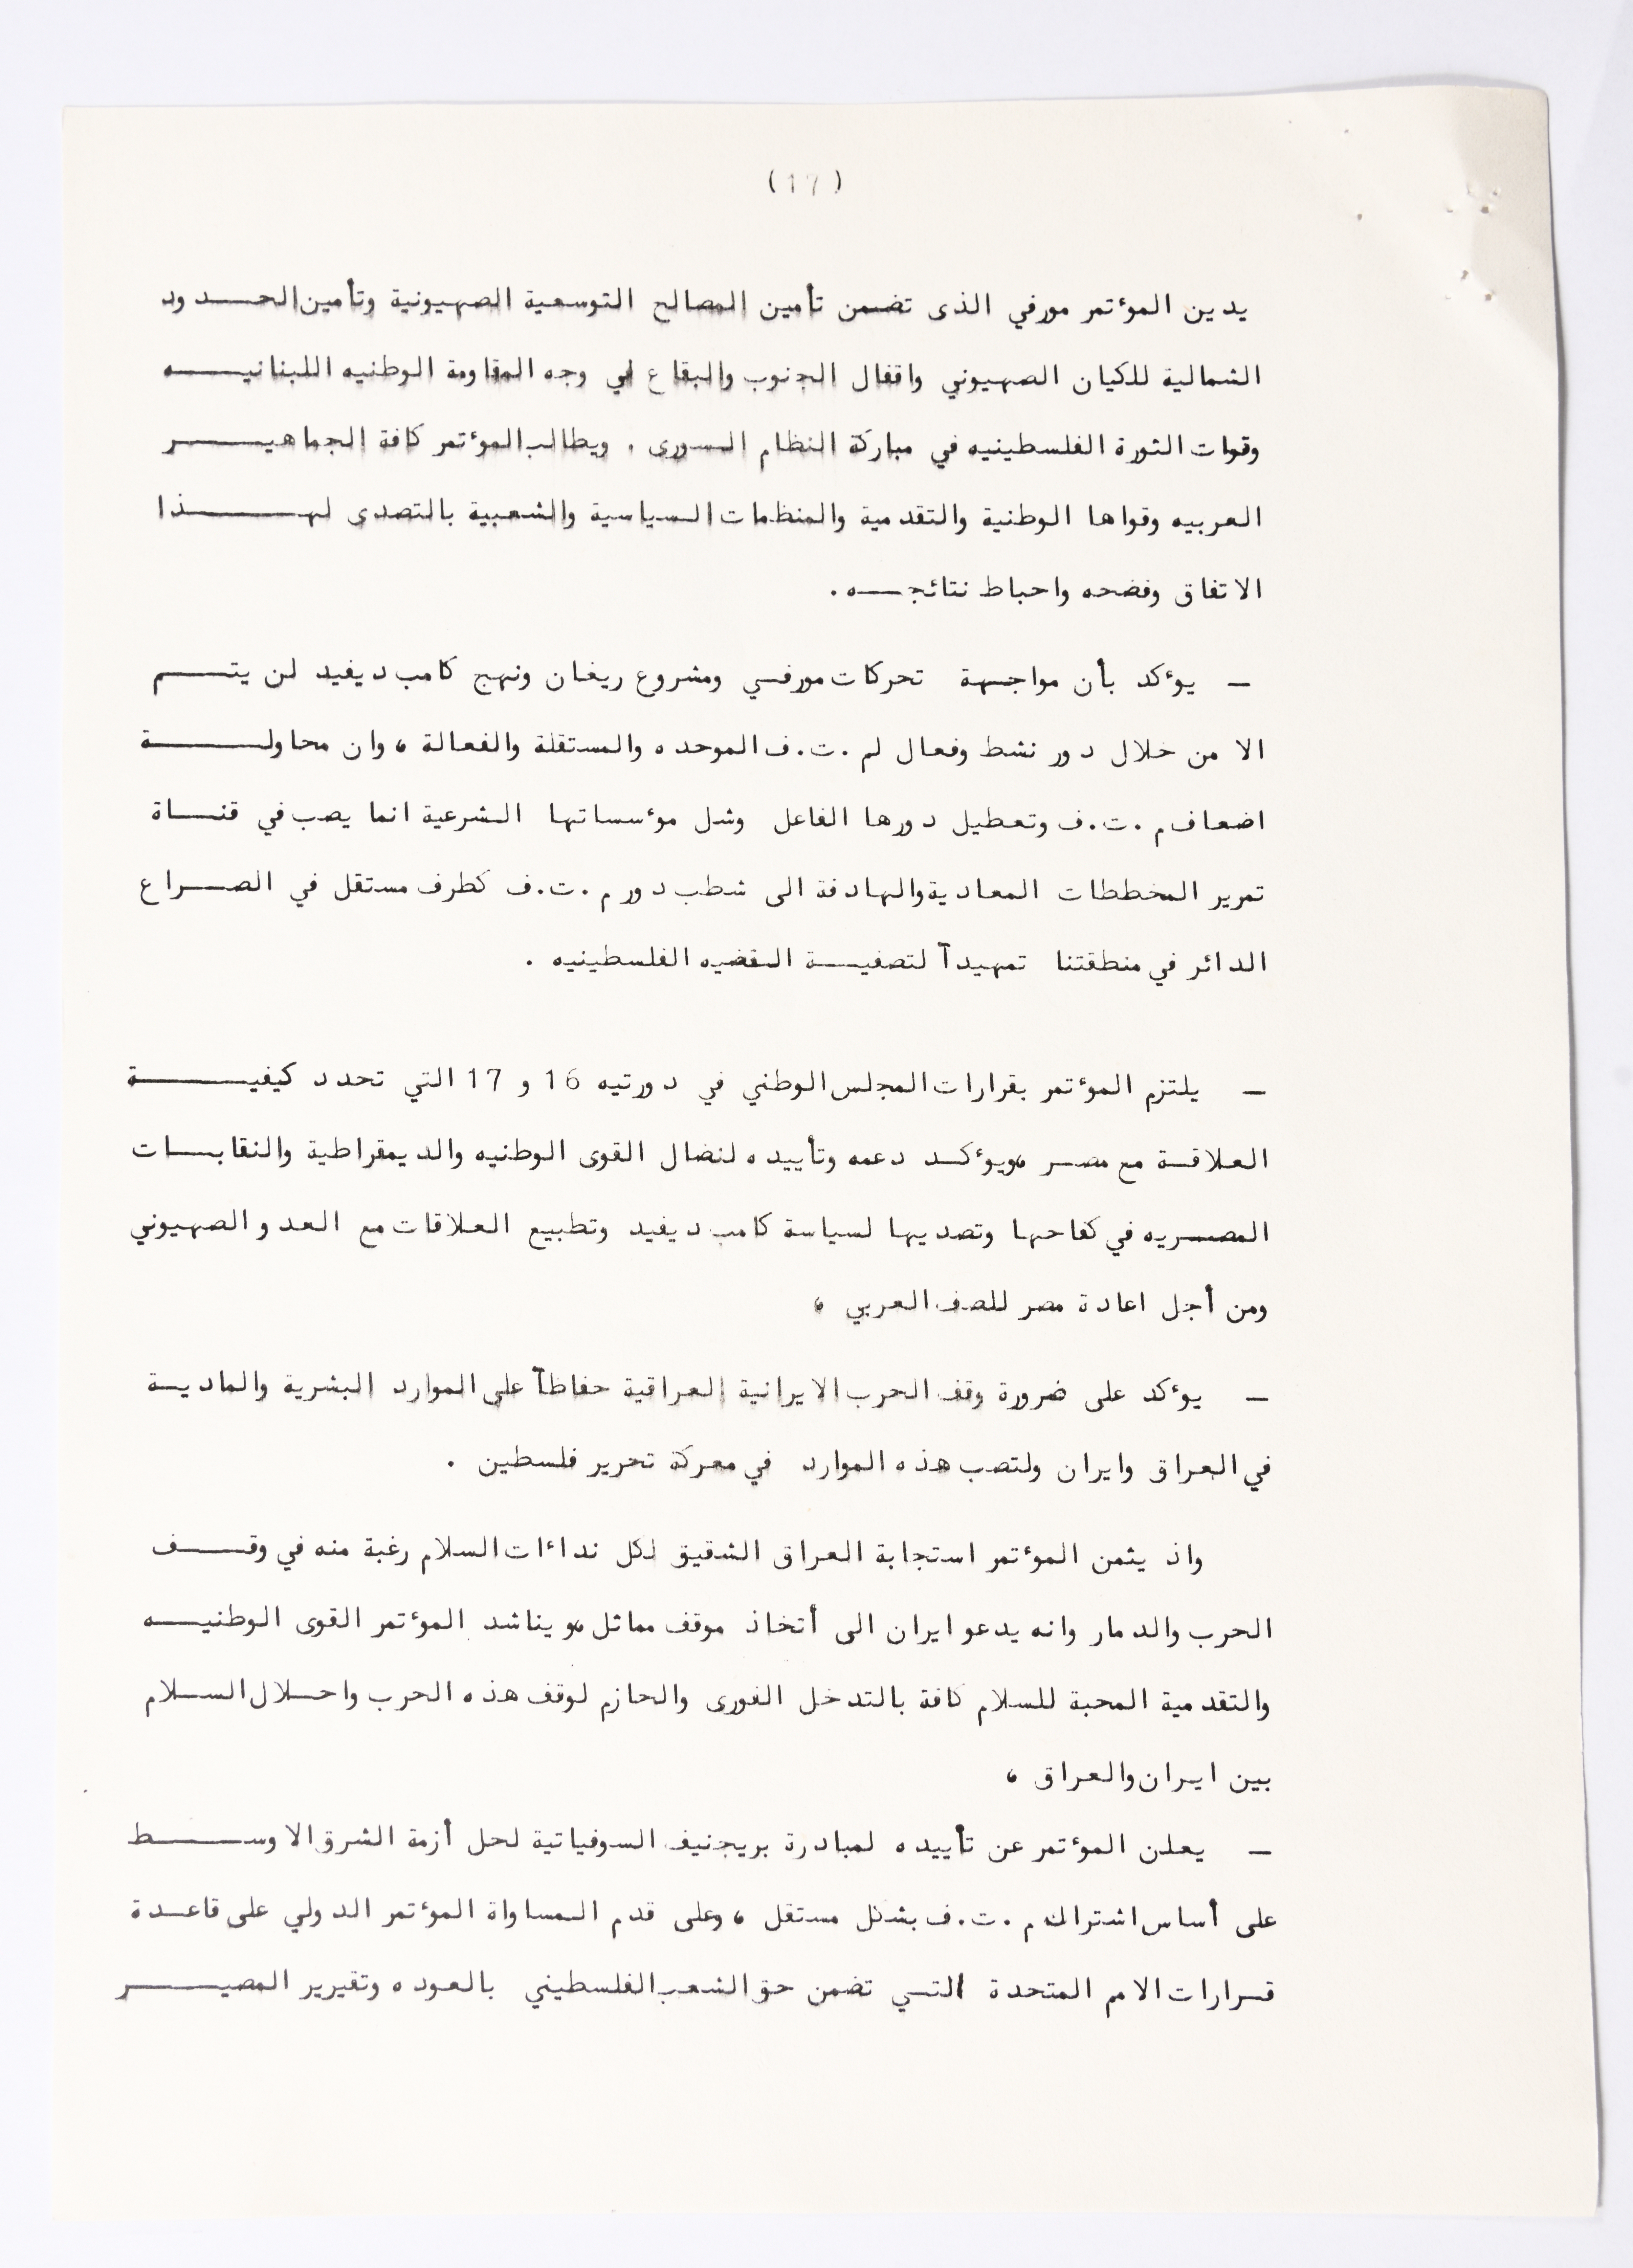 (17)
يدين المؤتمر مورفي الذى تضمن تأمين المصالح التوسعية الصهيونية وتأمين الحدود
الشمالية للكيان الصهيوني واقفال الجنوب والبقاع في وجه المقاومة الوطنيه اللبنانيه
وقوات الثورة الفلسطينيه في مباركة النظام السورى . ويطالب المؤتمر كافة الجماهير
العربيه وقواها الوطنية والتقدمية والمنظمات السياسية والشعبية بالتصدى لهذا
الاتفاق وفضحه واحباط نتائجه .
ـ يؤكد بأن مواجهة تحركات مورفي ومشروع ريغان ونهج كامب ديفيد لن يتم
الا من خلال دور نشط وفعال لم .ت.ف الموحده والمستقلة والفعالة ، وان محاولة
اضعاف م .ت.ف وتعطيل دورها الفاعل وشل مؤسساتها الشرعية انما يصب في قناة
تمرير المخططات المعادية والهادفة الى شطب دور م .ت.ف كطرف مستقل في الصراع
الدائر في منطقتنا تمهيدآ لتصفية القضيه الفلسطينيه .
ـ يلتزم المؤتمر بقرارات المجلس الوطني في دورتيه 16 و 17 التي تحدد كيفية
العلاقة مع مصر ،ويؤكد دعمه وتأييده لنضال القوى الوطنيه والديمقراطية والنقابات
المصريه في كفاحها وتصديها لسياسة كامب ديفيد وتطبيع العلاقات مع العدو الصهيوني
ومن أجل اعادة مصر للصف العربي ،
ـ يؤكد على ضرورة وقف الحرب الايرانية العراقية حفاظآ على الموارد البشرية والمادية
في العراق وايران ولتصب هذه الموارد في معركة تحرير فلسطين .
واذ يثمن المؤتمر استجابة العراق الشقيق لكل نداءات السلام رغبة منه في وقف
الحرب والدمار وانه يدعو ايران الى أتخاذ موقف مماثل ،و يناشد المؤتمر القوى الوطنيه
والتقدمية المحبة للسلام كافة بالتدخل الفورى والحازم لوقف هذه الحرب واحلال السلام
بين ايران والعراق ،
ـ يعلن المؤتمر عن تأييده لمبادرة بريجنيف السوفياتية لحل أزمة الشرق الاوسط
على أساس اشتراك م .ت.ف بشكل مستقل ، وعلى قدم المساواة المؤتمر الدولي على قاعدة
قرارات الامم المتحدة التي تضمن حق الشعب الفلسطيني بالعوده وتقيرير المصير